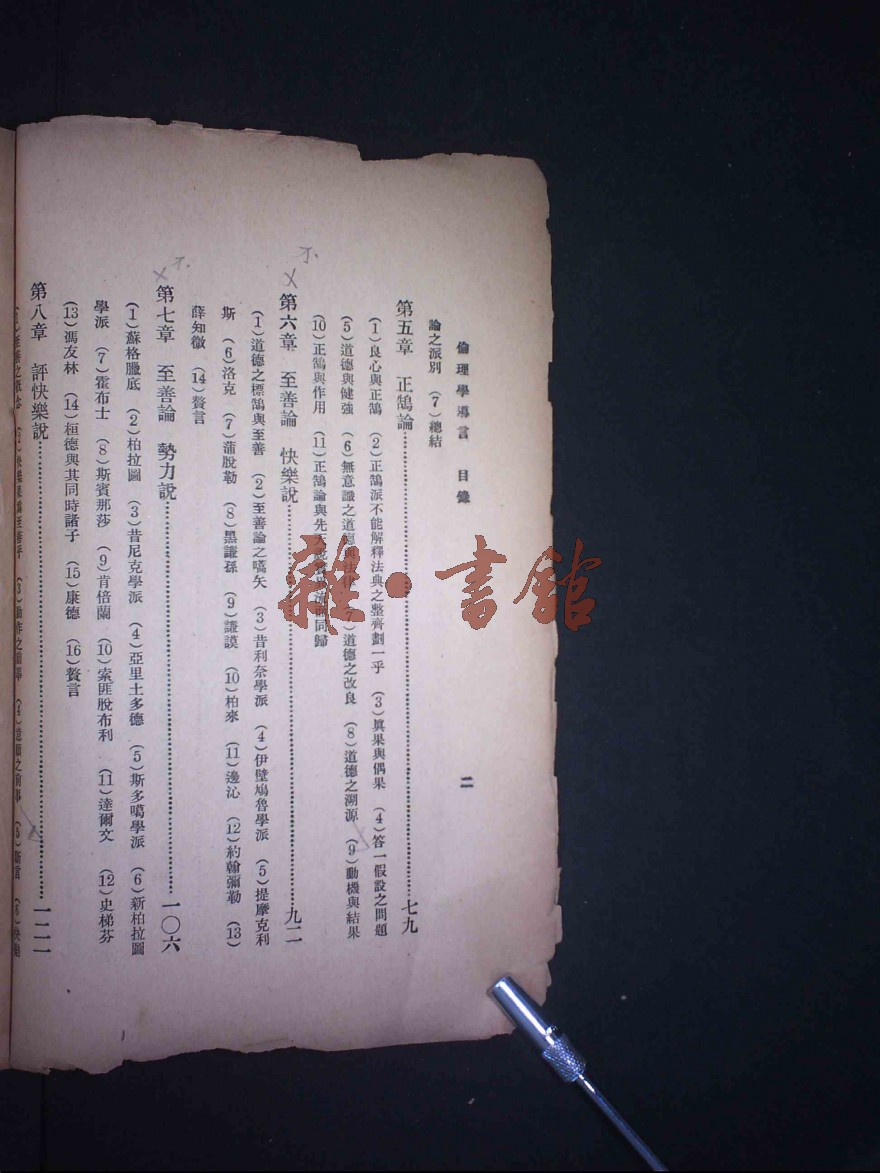 倫理學導言 目錄
二
論之派別 (7)總結
第五章 正鵠論……七九
(1)良心與正鵠 (2)正鵠派不能解釋法典之整齊劃一乎 (3)眞果與偶果 (4)答一假設之問題
(5)道德與健強 (6)無意識之道德 (7)道德之改良 (8)道德之溯源 (9)動機與結果
(10)正鵠與作用 (11)正鵠論與先天 同歸
第六章 至善論 快樂說……九二
(1)道德之標鵠與至善 (2)至善論之嚆矢 (3)昔利奈學派 (4)伊壁鳩魯學派 (5)提摩克利
斯 (6)洛克 (7)蒲脫勒 (8)黑謙孫 (9)謙謨 (10)柏來 (11)邊沁 (12)約翰彌勒 (13)
薛知微 (14)贅言
第七章 至善論 勢力說……一〇六
(1)蘇格臘底 (2)柏拉圖 (3)昔尼克學派 (4)亞里土多德 (5)斯多噶學派 (6)新柏拉圖
學派 (7)霍布士 (8)斯賓那莎 (9)肯倍蘭 (10)索匪脫布利 (11)達爾文 (12)史梯芬
(13)馮友林 (14)桓德與其同時諸子 (15)康德 (16)贅言
第八章 評快樂說……一二一
雜·書館
不
不